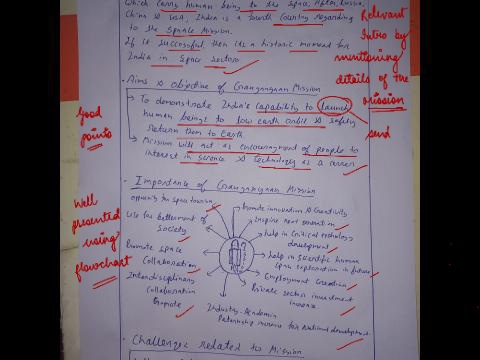 which carry human being to the space, After Russia,
China & USA, India is a fourth country regarding
to the Space Mission.
If it successful then it's a historic moment for
India in Space Sector
Relevant
Intro by
mentioning
details of the
mission
• Aims & Objective of Gaganyaan Mission
→ To demonstrate India's capability to launch
human beings to low earth orbit & safely
return them to Earth
send
→ Mission will act as encouragement of people to
interest in science & Technology as a career
Good
points
• Importance of Gaganyaan Mission
opportunity for Space tourism
Use for betterment of
Society
Promote Space
Collaboration
Interdisciplinary
Collaboration
Promote
Industry-Academia
Partnership increase for national development
Promote innovation & Creativity
Inspire next generation
help in Critical technology
development
help in scientific human
Space exploration in future
Employment Creation
Private sector investment
increase
Well
presented
using
flowchart
• Challenges related to Mission